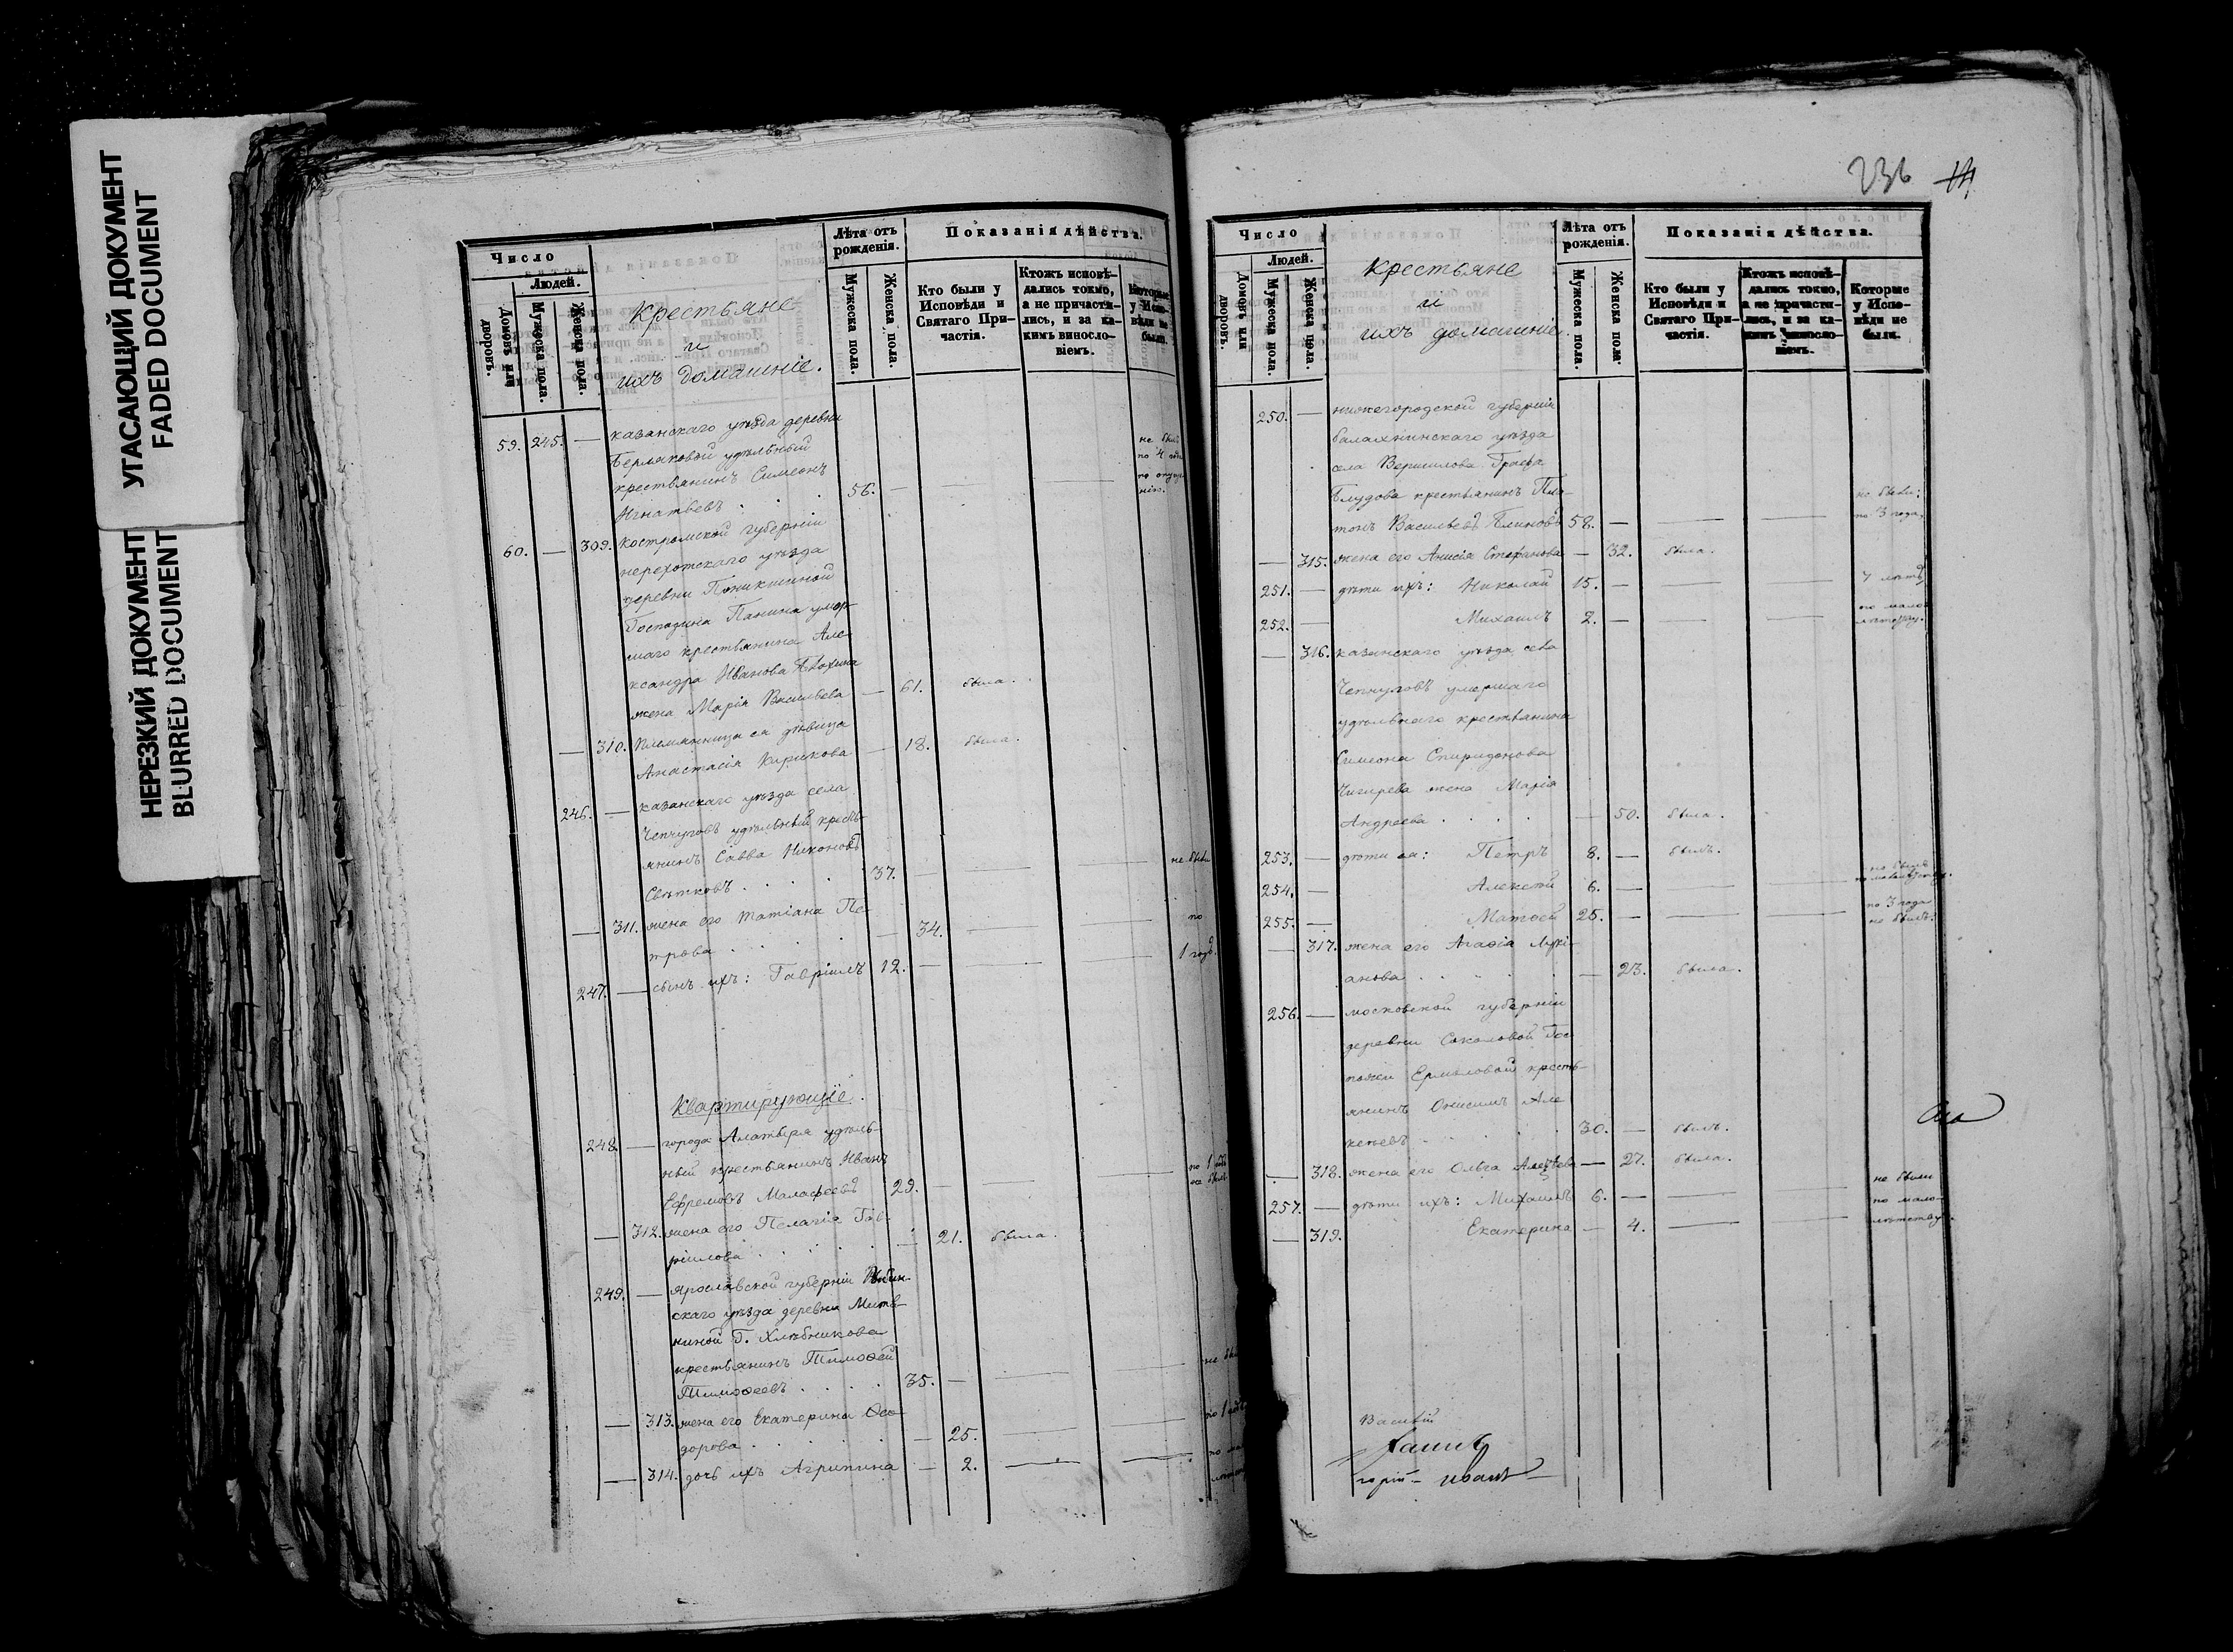 УГАСАЮЩИЙ ДОКУМЕНТ
FADED DOCUMENT
НЕРЕЗКИЙ ДОКУМЕНТ
BLURRED DOCUMENT
Число
Людей.
Домовъ или дворовъ.
Мужеска пола.
Женска пола.
Крестьяне
и
ихъ домашніе.
Лѣта отъ рожденія.
Мужеска пола.
Женска пола.
Показанія дѣйства.
Кто были у Исповѣди и Святаго Причастія.
Ктожъ исповѣдались токмо, а не причастились, и за какимъ винословіемъ.
Которые у Исповѣди не были.
59. 245. — казанскаго уѣзда деревни
удѣльный
крестьянинъ Симеонъ
Игнатьевъ . . . 56. —
не былъ
по 4 
60. — 309. Костромской губерніи
нерехотскаго уѣзда
деревни
Господина Панина умер-
шаго крестьянина Але-
ксандра Иванова
жена Марія Васильева — 61. была.
— 310. Племянница ея дѣвица
Анастасія Кирикова — 18. была.
246. — казанскаго уѣзда села
Чепчуговъ удѣльный кресть-
янинъ Савва Никоновъ
37. — не были
— 311. жена его Татіана Пе-
трова . . . — 34. по
247. — сынъ ихъ: Гавріилъ 12. — 1 годъ.
Квартирующіе.
248. — города Алатыря удѣль-
ный крестьянинъ Иванъ
Ефремовъ Малафеевъ 29. —
— 312. жена его Пелагія Гав-
ріилова . . . — 21. была.
249. — Ярославской губерніи
скаго уѣзда деревни
Г. Хлѣбникова
крестьянинъ Тимоѳей
Тимоѳеевъ . . . 35. —
— 313. жена его Екатерина Ѳео-
дорова . . . — 25.
— 314. дочь ихъ Агрипина — 2.
236 14
Число
Людей.
Домовъ или дворовъ.
Мужеска пола.
Женска пола.
Крестьяне
и
ихъ домашніе
Лѣта отъ рожденія.
Мужеска пола.
Женска пола.
Показанія дѣйства.
Кто были у Исповѣди и Святаго Причастія.
Ктожъ исповѣдались токмо, а не причастились, и за какимъ винословіемъ.
Которые у Исповѣди не были.
250. — нижегородской губерніи
балахнинскаго уѣзда
села Вершилова Графа
Блудова крестьянинъ Пла-
тонъ Васильевъ Блиновъ 58. —
не были:
по 3 года,
— 315. жена его Анисія Стефанова — 32. была.
251. — дѣти ихъ: Николай 15. — 7 лѣтъ
252. — Михаилъ 2. — по мало-
лѣтству.
— 316. казанскаго уѣзда села
Чепчуговъ умершаго
удѣльнаго крестьянина
Симеона Спиридонова
Чигирева жена Марія
Андреева . . . — 50. была.
253. — дѣти ея: Петръ 8. — былъ.
254. — Алексѣй 6. — не былъ
по малолѣтству.
255. — Матѳей 25. — по 3 года
не былъ.
— 317. жена его Агаѳія Лукі-
анова . . . — 23. была.
256. — московской губерніи
деревни Соколовой Гос-
пожи Ермоловой кресть-
янинъ Онисимъ Але
ксѣевъ . . . 30. — былъ.
— 318. жена его Ольга Алексѣева — 27. была.
257. — дѣти ихъ: Михаилъ 6. — не были
по мало-
— 319. Екатерина — 4. лѣтству.
горій — Иванъ